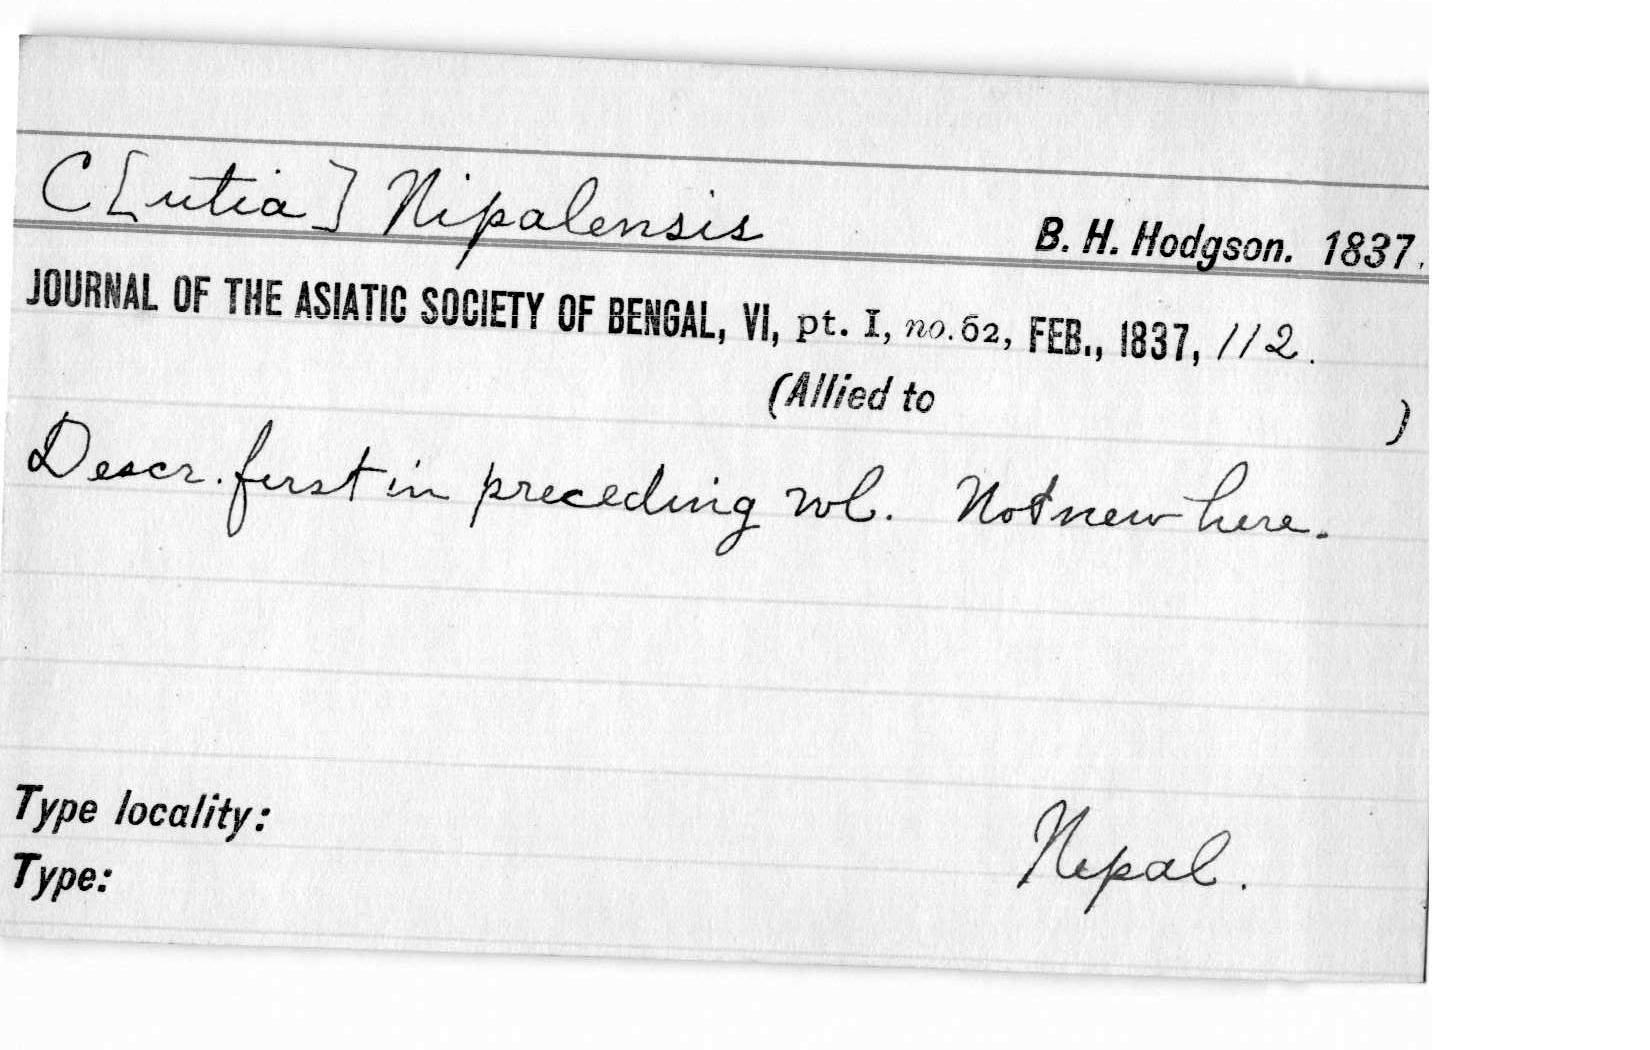 C[utia] Nipalensis B. H. Hodgson. 1837.
JOURNAL OF THE ASIATIC SOCIETY OF BENGAL, VI, pt. I, no. 62, FEB., 1837, 112.
(Allied to )
Descr. first in preceding vol. Not new here.
Type locality:
Nepal.
Type: